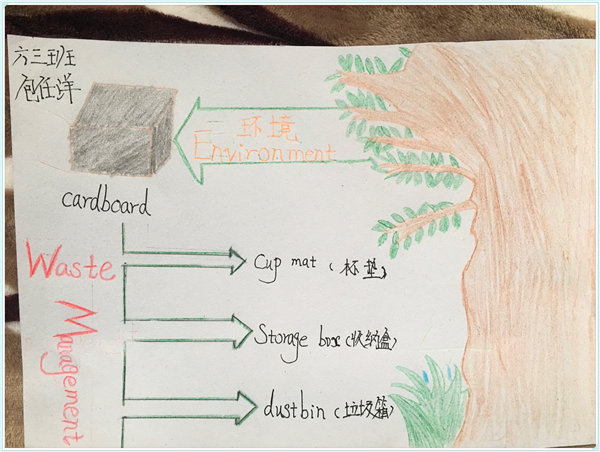 六三班
包任洋
环境
Environment
cardboard
Waste
Management
Cup mat (杯垫)
Storage box (收纳盒)
dustbin (垃圾箱)